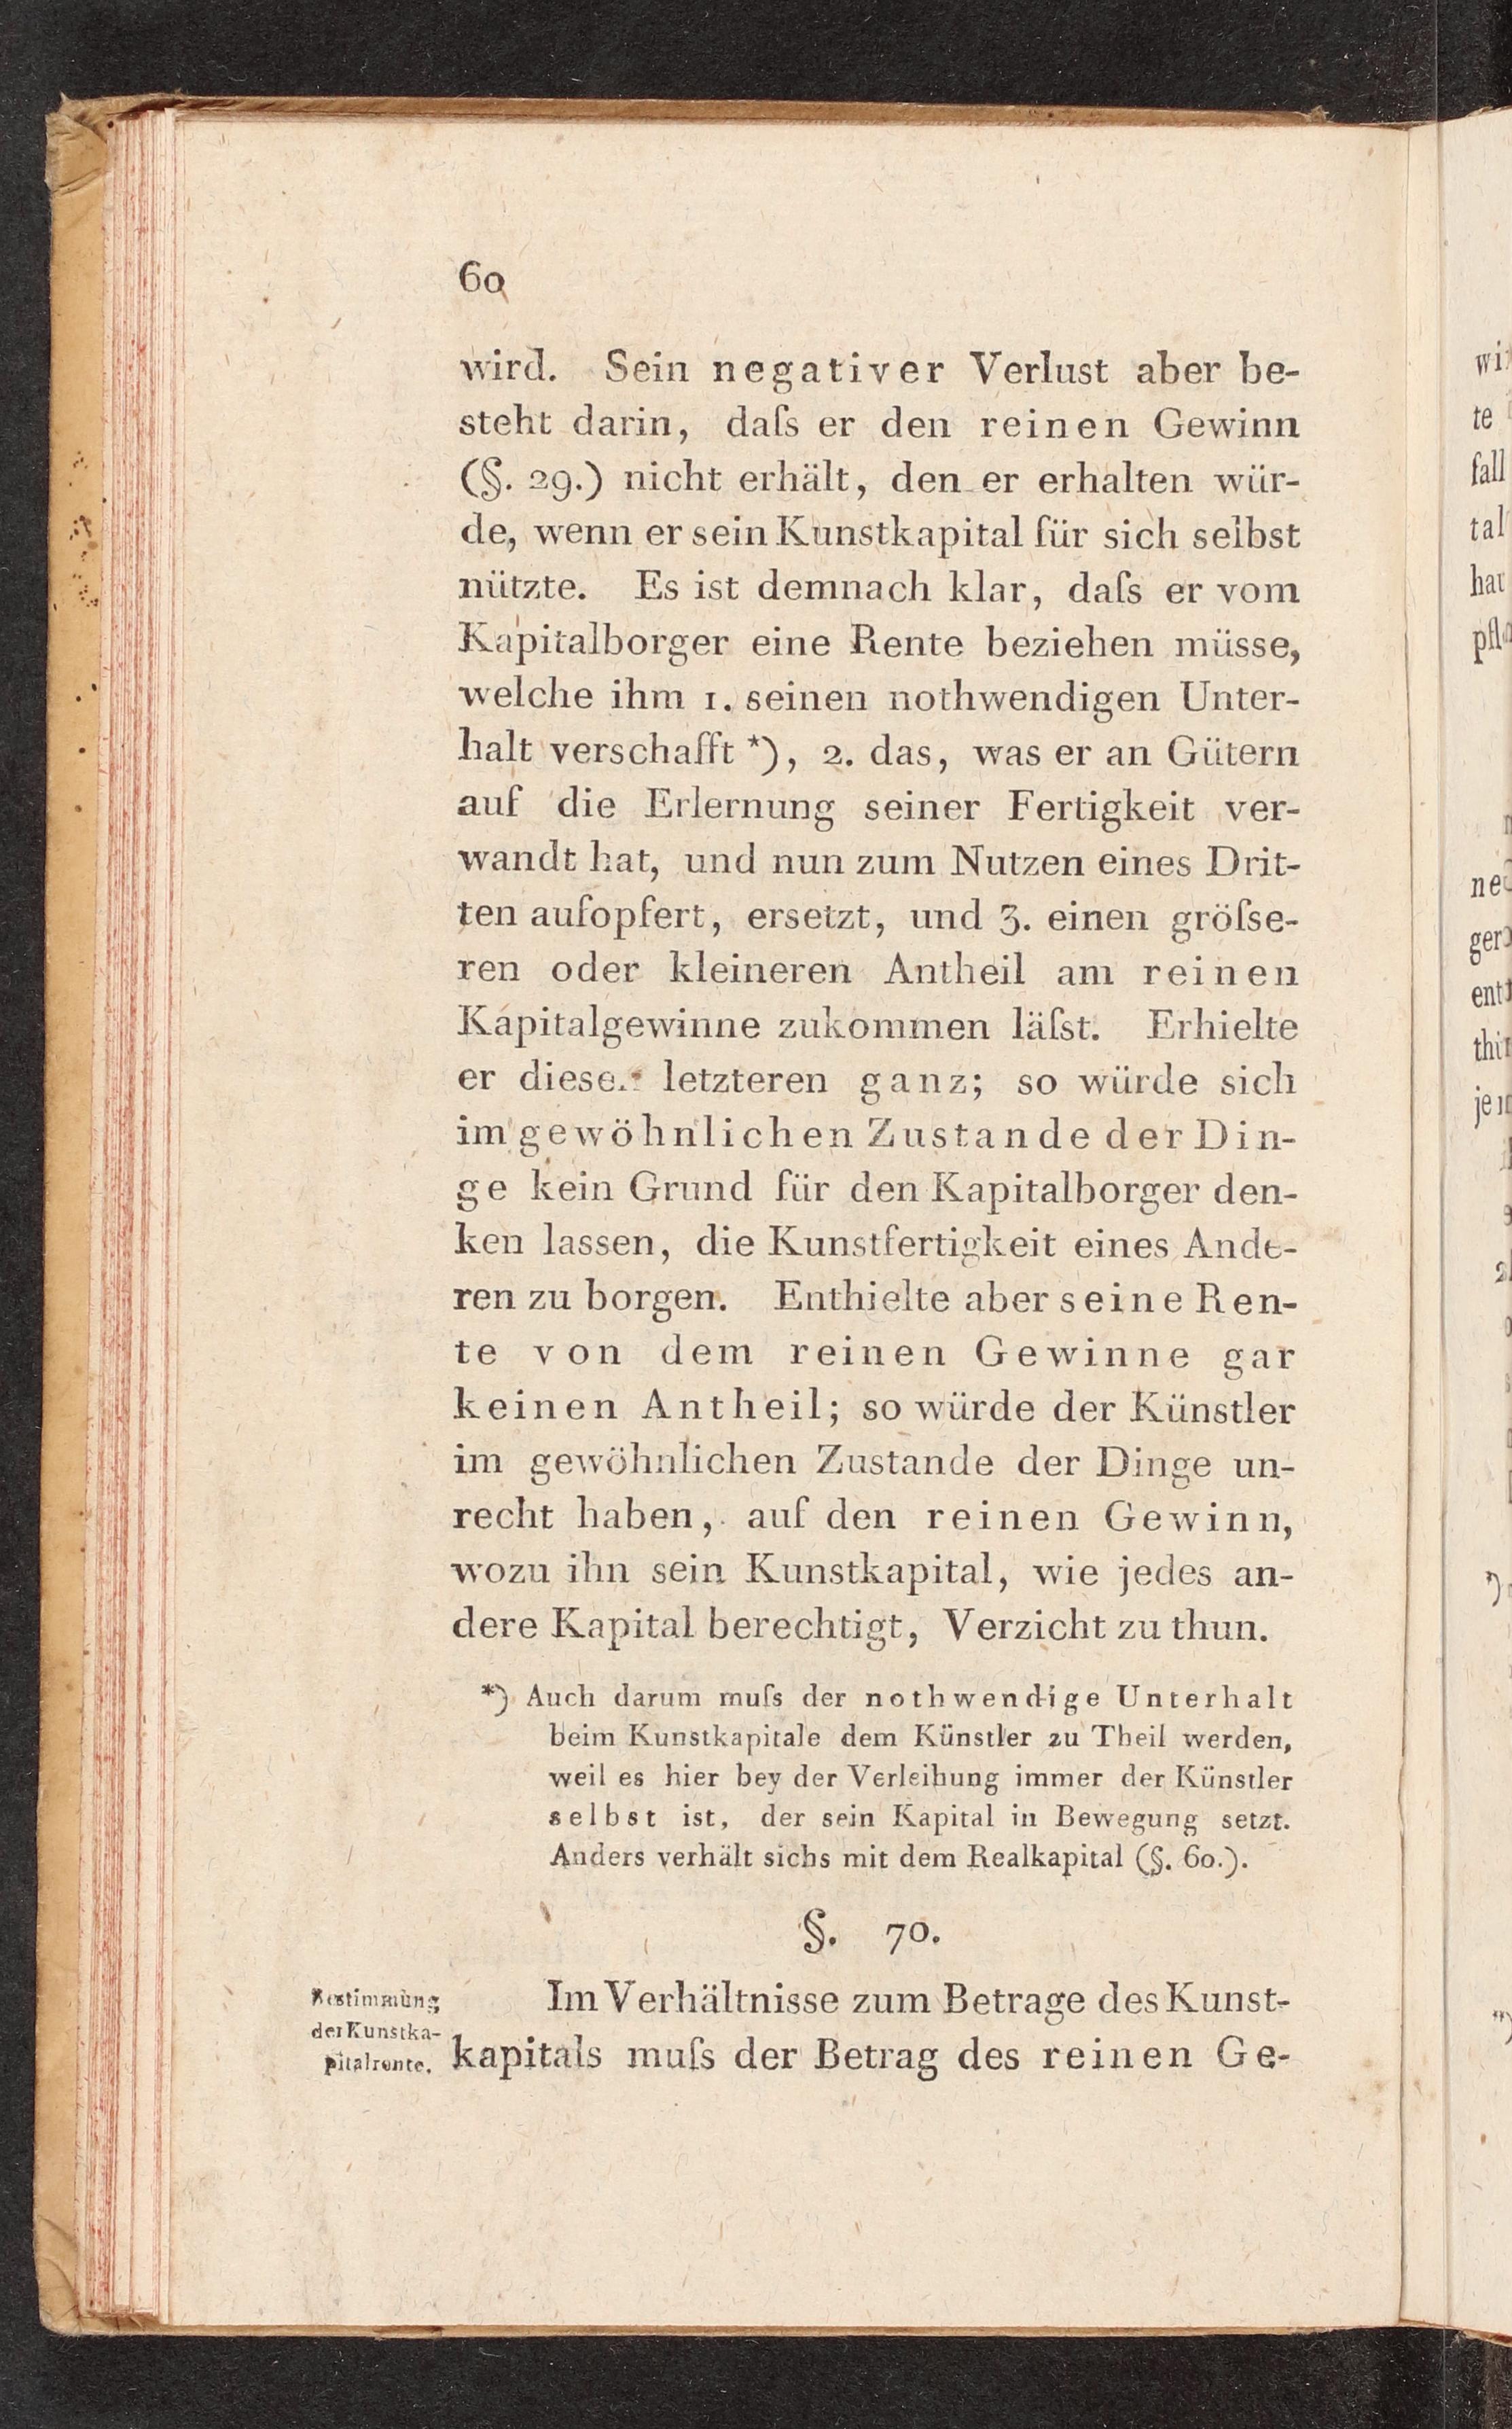 60
wird. Sein negativer Verlust aber be-
steht darin, daſs er den reinen Gewinn
(§. 29.) nicht erhält, den er erhalten wür-
de, wenn er sein Kunstkapital für sich selbst
nützte. Es ist demnach klar, daſs er vom
Kapitalborger eine Rente beziehen müsse,
welche ihm 1. seinen nothwendigen Unter-
halt verschafft *), 2. das, was er an Gütern
auf die Erlernung seiner Fertigkeit ver-
wandt hat, und nun zum Nutzen eines Drit-
ten aufopfert, ersetzt, und 3. einen gröſse-
ren oder kleineren Antheil am reinen
Kapitalgewinne zukommen läſst. Erhielte
er letzteren ganz; so würde sich
im gewöhnlichen Zustande der Din-
ge kein Grund für den Kapitalborger den-
ken lassen, die Kunstfertigkeit eines Ande-
ren zu borgen. Enthielte aber seine Ren-
te von dem reinen Gewinne gar
keinen Antheil; so würde der Künstler
im gewöhnlichen Zustande der Dinge un-
recht haben, auf den reinen Gewinn,
wozu ihn sein Kunstkapital, wie jedes an-
dere Kapital berechtigt, Verzicht zu thun.
*) Auch darum muſs der nothwendige Unterhalt
beim Kunstkapitale dem Künstler zu Theil werden,
weil es hier bey der Verleihung immer der Künstler
selbst ist, der sein Kapital in Bewegung setzt.
Anders verhält sichs mit dem Realkapital (§. 60.).
§. 70.
Bestimmung
der Kunstka-
pitalrente.
Im Verhältnisse zum Betrage des Kunst-
kapitals muſs der Betrag des reinen Ge-